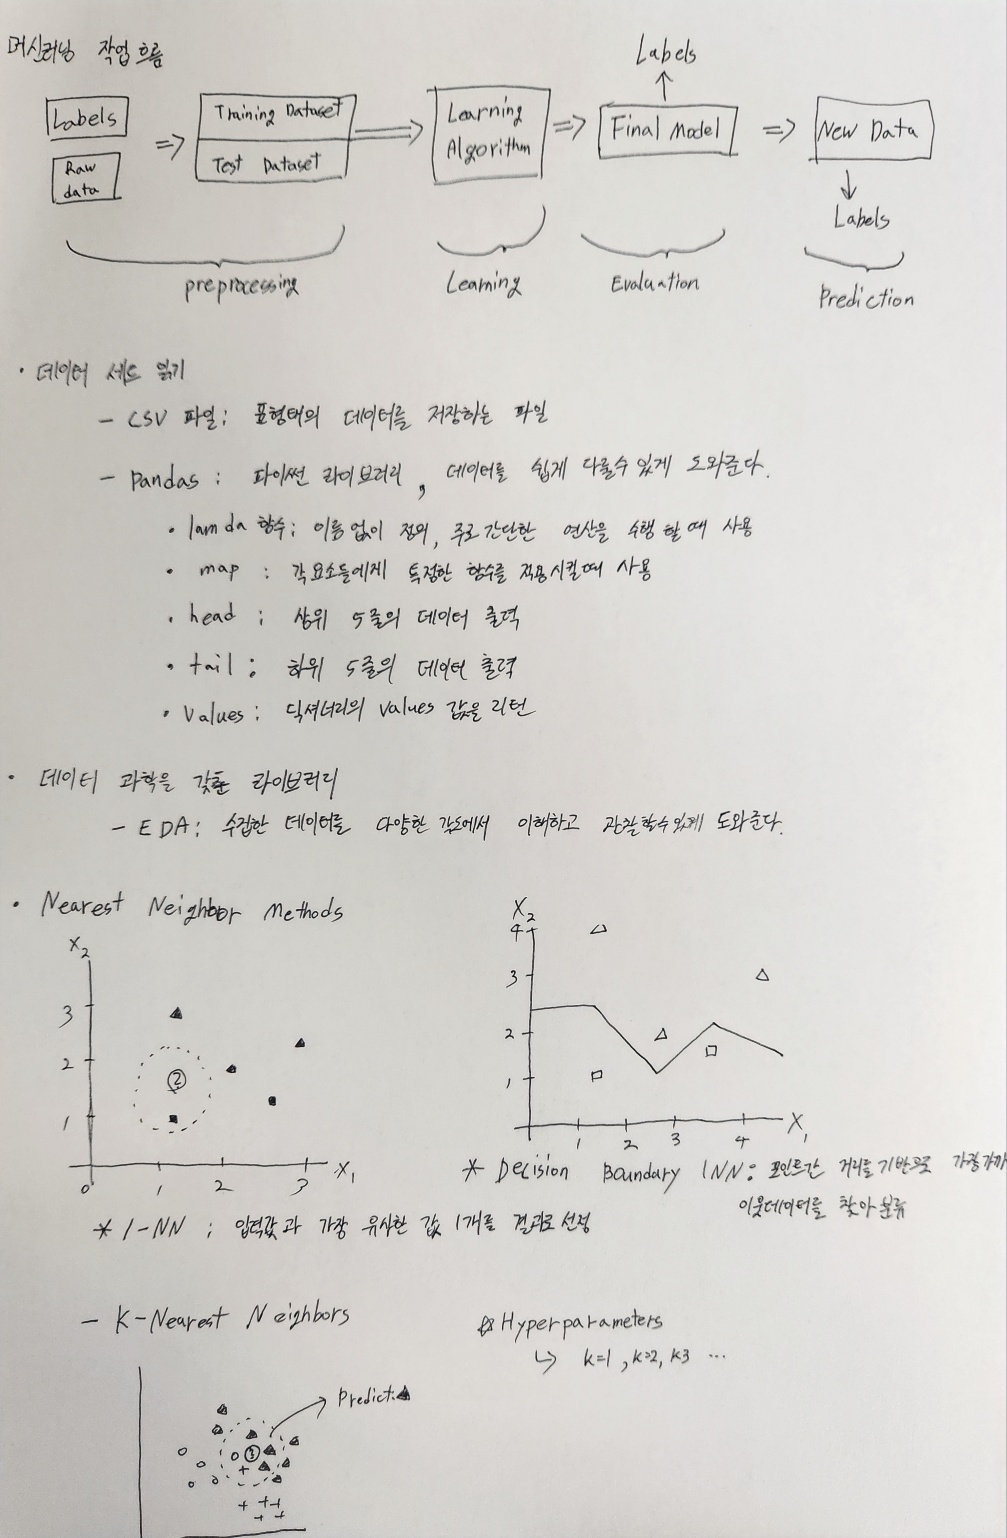 머신러닝 작업 흐름
Labels
Labels
Raw
data
⇒
Training Dataset
Test Dataset
⇒
Learning
Algorithm
⇒
Final Model
⇒
New Data
Labels
preprocessing
Learning
Evaluation
Prediction
· 데이터 세트 읽기
- CSV 파일: 표형태의 데이터를 저장하는 파일
- Pandas : 파이썬 라이브러리, 데이터를 쉽게 다룰수 있게 도와준다.
· lamda 함수: 이름 없이 정의, 주로 간단한 연산을 수행 할 때 사용
· map : 각 요소들에게 특정한 함수를 적용시킬때 사용
· head : 상위 5줄의 데이터 출력
· tail : 하위 5줄의 데이터 출력
· Values : 딕셔너리의 values 값을 리턴
· 데이터 과학을 갖춘 라이브러리
- EDA: 수집한 데이터를 다양한 각도에서 이해하고 관찰할수 있게 도와준다.
· Nearest Neighbor Methods
X₂
3
2
1
0
1
2
3
X₁
?
X₂
4
3
2
1
1
2
3
4
X₁
* Decision Boundary 1NN: 포인트간 거리를 기반으로 가장 가까
이웃데이터를 찾아 분류
* 1-NN : 입력값과 가장 유사한 값 1개를 결과로 선정
- K-Nearest Neighbors
☆ Hyperparameters
↳ k=1, k=2, k3 ...
Predict:▲